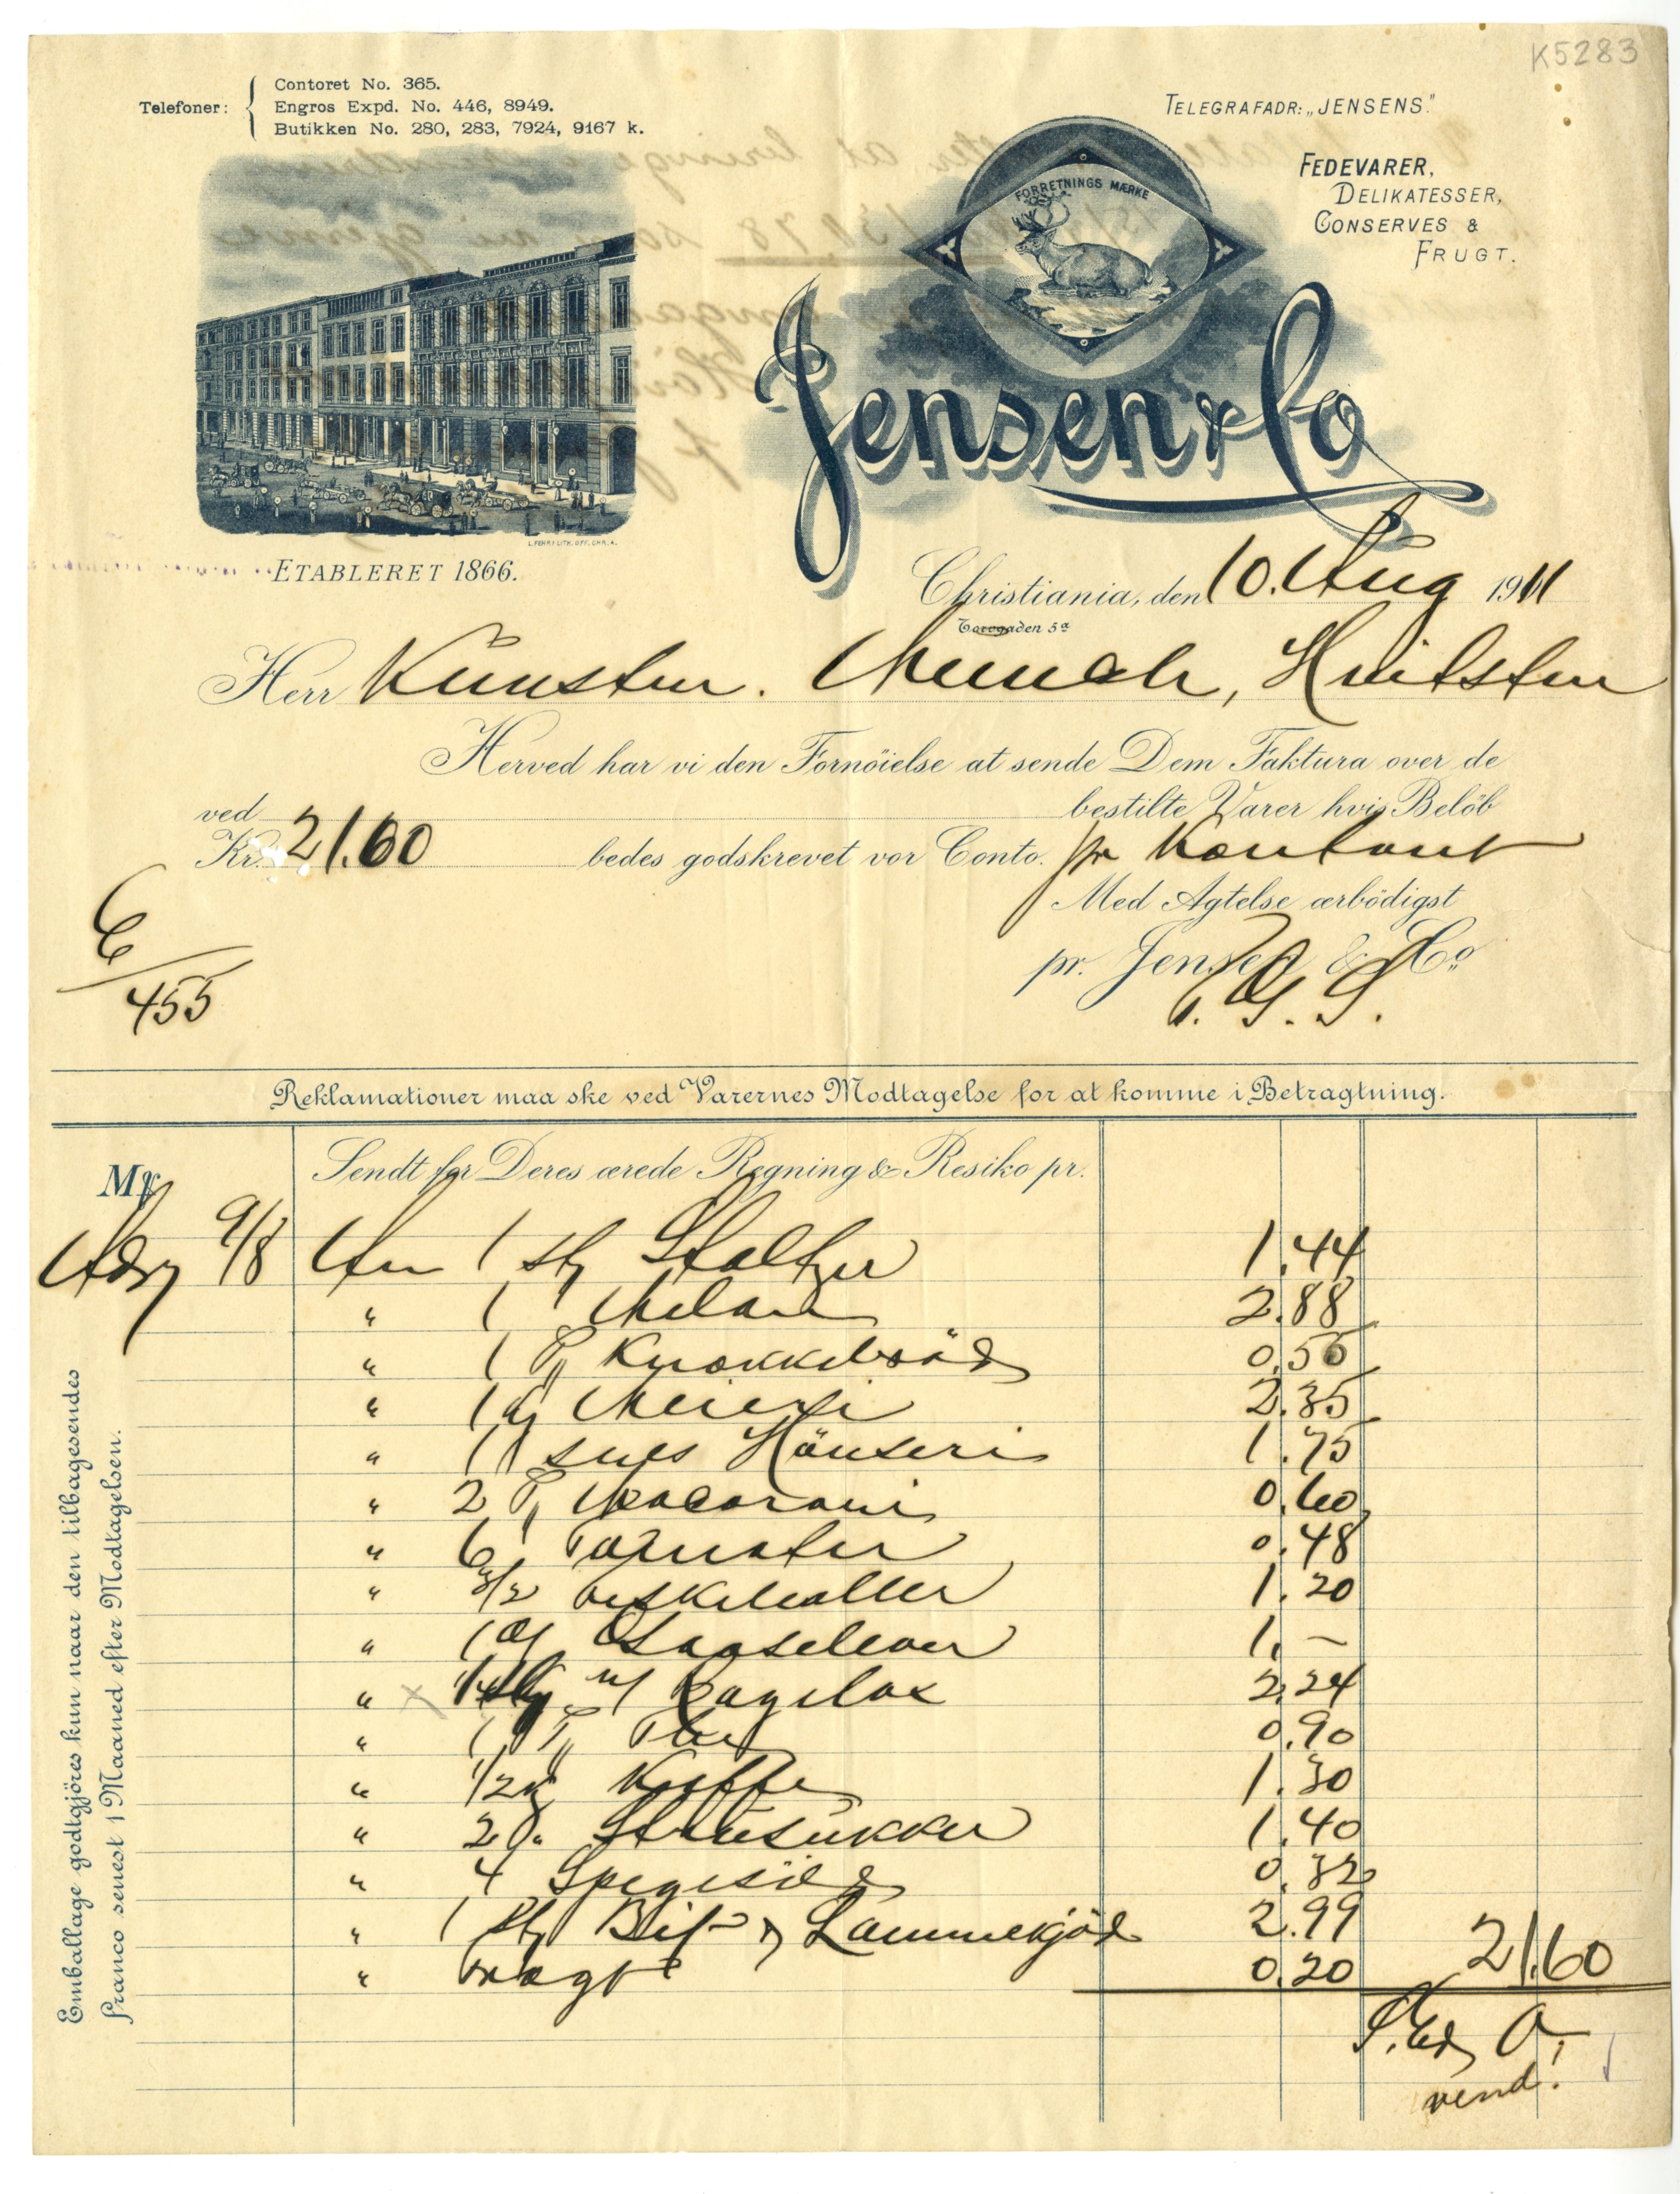 K5283
Telefoner:
Contoret No. 365.
Engros Expd. No. 446, 8949.
Butikken No. 280, 283, 7924, 9167 k.
TELEGRAFADR: „JENSENS."
FORRETNINGS MÆRKE
FEDEVARER,
DELIKATESSER,
CONSERVES &
FRUGT.
Jensen & Co
L. FEHR'S LITH. OFF. CHR. A.
ETABLERET 1866.
Christiania, den 10. Aug 1911
Torvgaden 5a
Herr Kunstm. Munch, Hvitsten
Herved har vi den Fornöielse at sende Dem Faktura over de
ved bestilte Varer hvis Belöb
Kr. 21.60 bedes godskrevet vor Conto. pr Kontant
Med Agtelse ærbödigst
pr. Jensen & Co
6/455
Reklamationer maa ske ved Varernes Modtagelse for at komme i Betragtning.
Mrk Sendt for Deres ærede Regning & Resiko pr.
9/8 1 1.44
" 1 2.88
" 1 Knækkebröd 0.55
" 1 Meieri 2.35
" 1 1.75
" 2 Macaroni 0.60
" 6 Tomater 0.48
" 3/2 Fiskeboller 1.20
" 1 Gaaselever 1. –
" Røgelax 2.24
" 1 The 0.90
" 1/2 Kaffe 1.30
" 2 Støusukker 1.40
" 4 Spegesild 0.32
" 1 Bif- Lammekjöd 2.99
" Fragt 0.20 21.60
vend!
Emballage godtgjöres kun naar den tilbagesendes
franco senest 1 Maaned efter Modtagelsen.